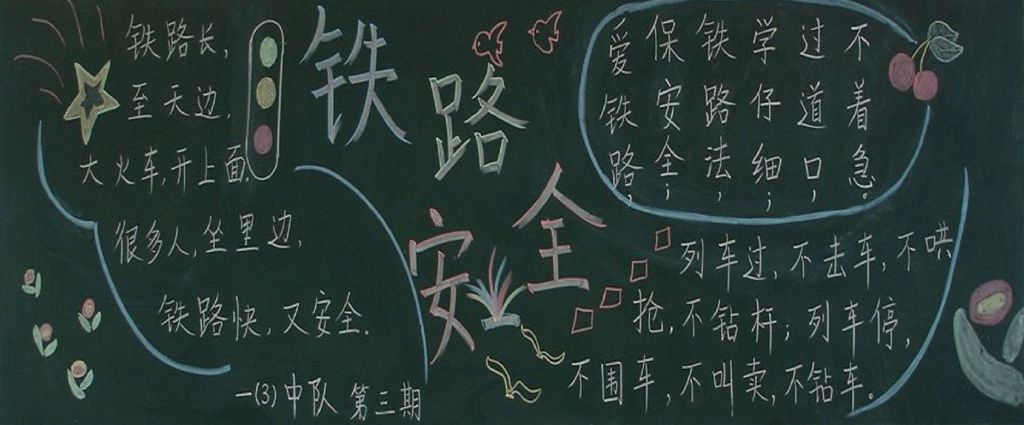 铁路安全
铁路长,
至天边,
大火车,开上面.
很多人,坐里边,
铁路快,又安全.
一(3)中队 第三期
爱铁路,
保安全;
铁路法,
学仔细;
过道口,
不着急。
列车过,不去车,不哄
抢,不钻杆;列车停,
不围车,不叫卖,不钻车。